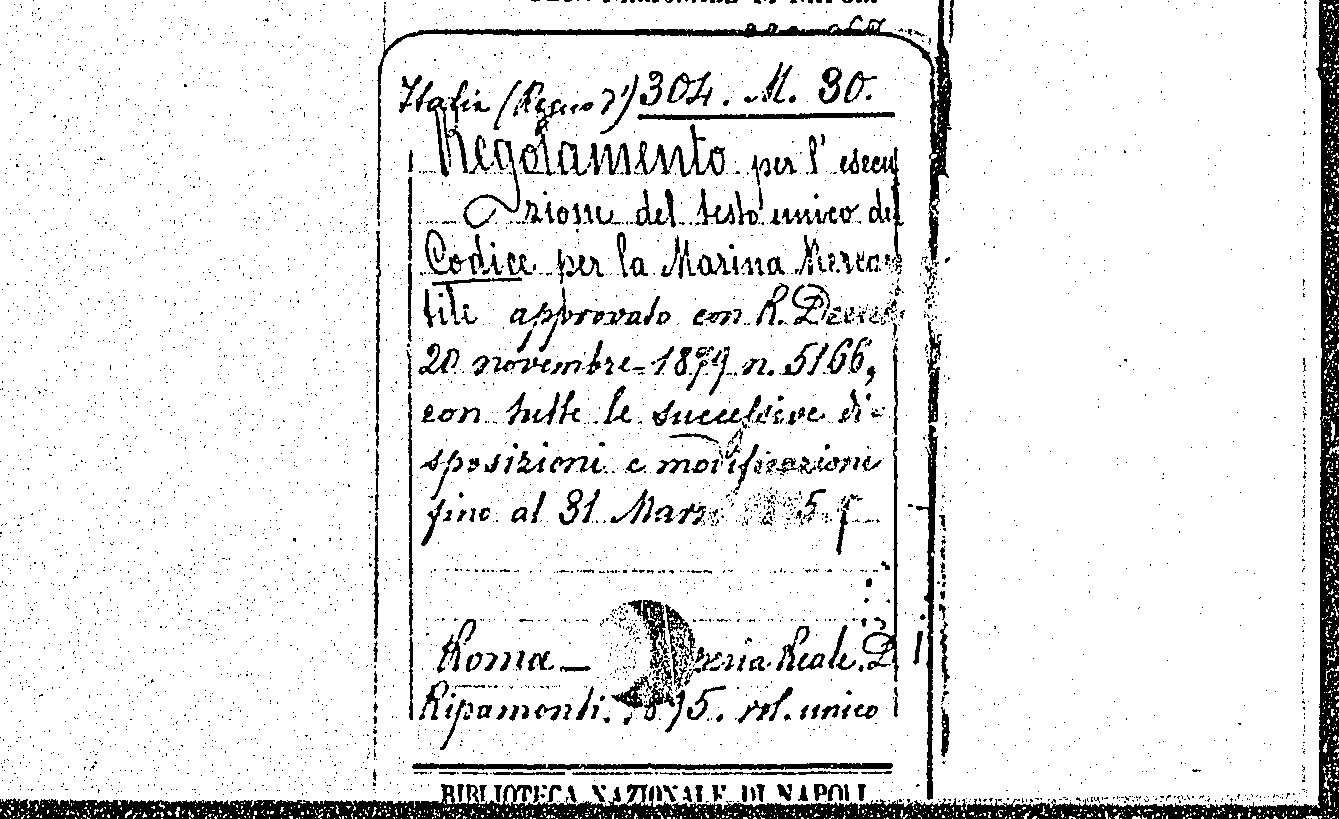 Italia (Regno d') 304. M. 30.
Regolamento per l'esecu
zione del testo unico del
Codice per la Marina Mercan
tile approvato con R. Decreto
20 novembre 1879 n. 5166,
con tutte le successive di-
sposizioni e modificazioni
fino al 31 Marzo
Roma — Reale. D.
Ripamonti. vol. unico
BIBLIOTECA NAZIONALE DI NAPOLI